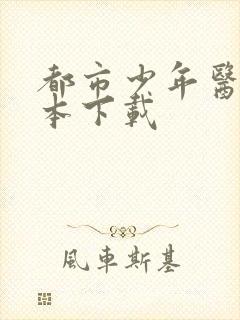 都市少年醫
本下載
風車斯基